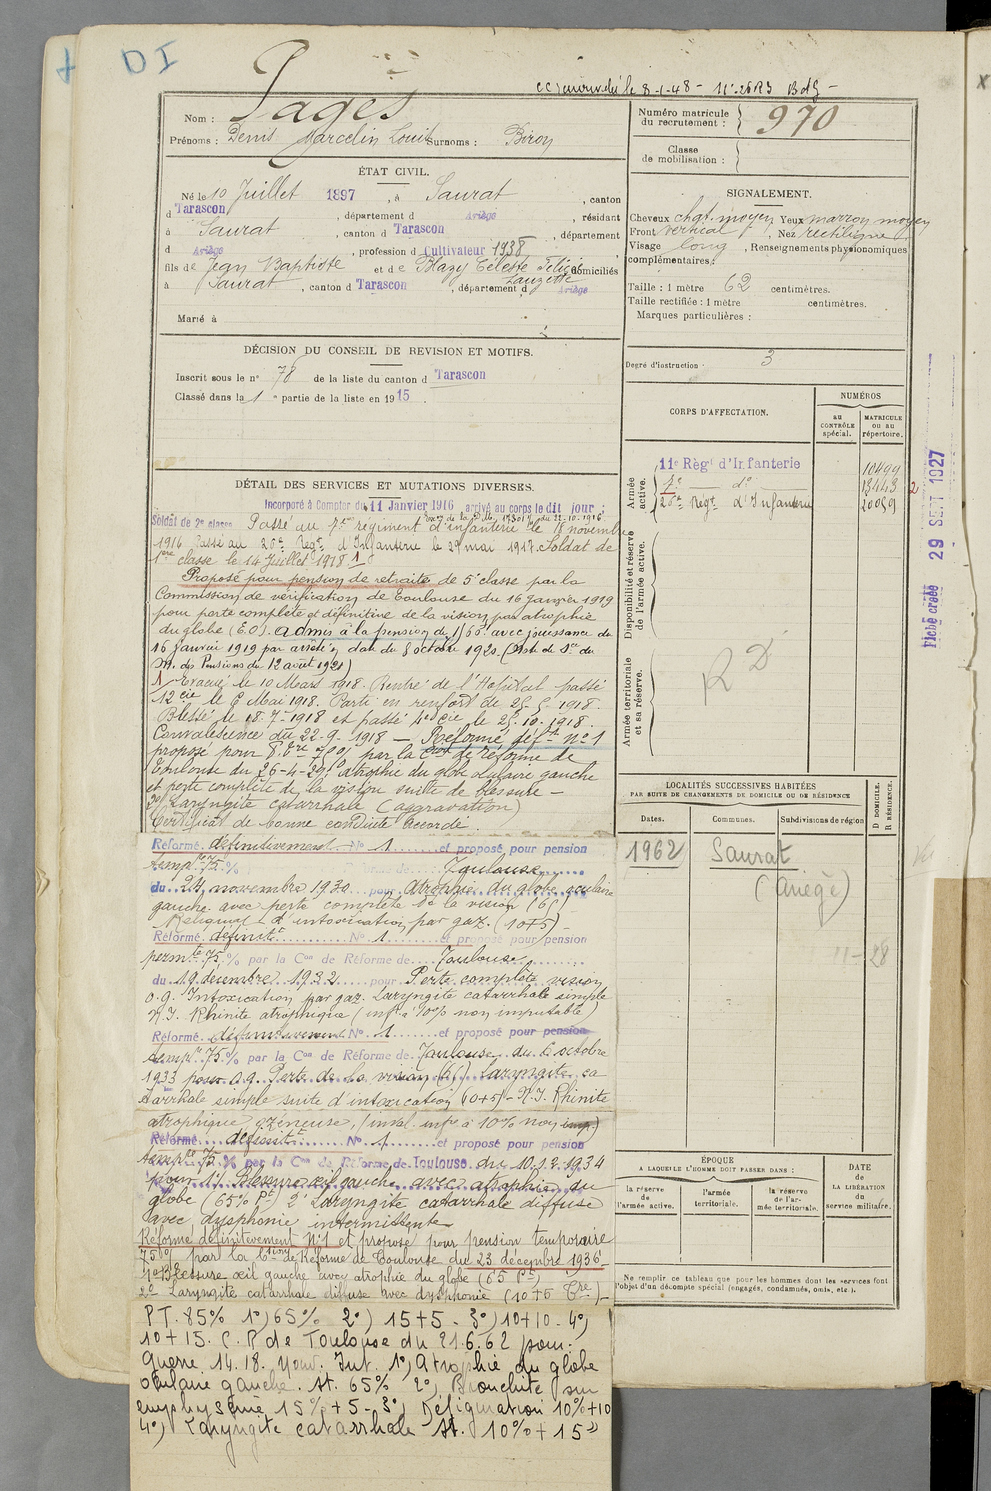 DI
Nom : Pagés
Prénoms : Denis Marcelin Louis Surnoms : Biroy
ÉTAT CIVIL.
Né le 10 Juillet 1897, à Saurat, canton
d Tarascon, département d Ariège, résidant
à Saurat, canton d Tarascon, département
d Ariège, profession d Cultivateur 1938
fils de Jean Baptiste et de Blazy Céleste Félicie domiciliés
Lauzette
à Saurat, canton d Tarascon, département d Ariège
Marié à
DÉCISION DU CONSEIL DE REVISION ET MOTIFS.
Inscrit sous le n° 78 de la liste du canton d Tarascon
Classé dans la 1 e partie de la liste en 1915.
DÉTAIL DES SERVICES ET MUTATIONS DIVERSES.
Incorporé à Compter du 11 Janvier 1916, arrivé au corps le dit jour ;
Soldat de 2e classe Passé au 7e régiment d'infanterie le 18 novembre
1916 Passé au 26e Régt d'Infanterie le 29 mai 1917. Soldat de
1re classe le 14 Juillet 1918 1
Proposé pour pension de retraite de 5e classe par la
Commission de vérification de Toulouse du 16 janvier 1919
pour perte complète et définitive de la vision par atrophie
du globe (E.O). admis à la pension de 1/65° avec jouissance du
16 janvier 1919 par arrêté en dat du 8 octobre 1920. (Not. de Sce du
M. des Pensions du 12 août 1921)
1 Evacué le 10 Mars 1918. Rentré de l'Hopital passé
12 cie le 6 Mai 1918. Parti en renfort de 25-5-1918.
Blessé le 18-7-1918 et passé 4e d cie le 25.10.1918.
Convalescence du 22-9-1918 — Réformé déft n° 1
proposé pour P. Tre 70% par la Con de réforme de
Toulouse du 26-4-29 1° atrophie du globe oculaire gauche
et perte complète de la vision suite de blessure —
2° Laryngite catarrhale (aggravation)
Certificat de bonne conduite Accordé.
Réformé définitivement N° 1 et proposé pour pension
temp re 75 % Toulouse
du 24 novembre 1930 pour atrophie du globe oculaire
gauche avec perte complète de la vision (65)
Reliquat d'intoxication par gaz. (10+5) —
Réformé définitt N° 1 et proposé pour pension
permte 75 % par la Con de Réforme de Toulouse
du 19 décembre 1932 pour Perte complète vision
o.g. Intoxication par gaz. Laryngite catarrhale simple
N.I. Rhinite atrophique (infre à 10% non imputable)
Réformé définitivement N° 1 et proposé pour pension
temp re 75 % par la Con de Réforme de Toulouse du 6 octobre
1933 pour o.g. Perte de la vision (65) Laryngite ca
tarrhale simple suite d'intoxication (10+5) — N.I. Rhinite
atrophique ozéneuse, (inval. infre à 10% non imp.)
Réformé définitt N° 1 et proposé pour pension
temp re 75 % par la Con de Réforme de Toulouse du 10.12.1934
pour 1°/ Blessure œil gauche avec atrophie du
globe (65% Pt) 2° Laryngite catarrhale diffuse
avec dysphonie intermittente
Réformé définitevement N°1 et proposé pour pension temporaire
75% par la Csion de Réforme de Toulouse du 23 décembre 1936
1° Blessure œil gauche avec atrophie du globe (65 Pt)
2° Laryngite catarrhale diffuse avec dysphonie (10+5 Tre) —
PT. 85% 1°) 65% 2°) 15+5 - 3°) 10+10 - 4°)
10+15. C.R de Toulouse du 21.6.62 pour
Guerre 14.18. Nouv. Inf. 1°) Atrophie du globe
oculaire gauche. St. 65% 2°) Bronchite sur
emphysème 15%+5 - 3°) Défiguration 10%+10
4°) Laryngite catarrhale St. 10%+15
Numéro matricule
du recrutement : 970
Classe
de mobilisation :
SIGNALEMENT.
Cheveux chat. moyen Yeux marron moyen
Front vertical, Nez rectiligne
Visage long, Renseignements physionomiques
complémentaires :
Taille : 1 mètre 62 centimètres.
Taille rectifiée : 1 mètre centimètres.
Marques particulières :
Degré d'instruction : 3
CORPS D'AFFECTATION.
NUMÉROS
au
CONTRÔLE
spécial.
MATRICULE
ou au
répertoire.
Armée
active.
11e Régt d'Infanterie 10499
7e d° 13443 2
26e Régt d'Infanterie 20059
Disponibilité et réserve
de l'armée active.
Armée territoriale
et sa réserve.
RD
Fiche créée 29 SEPT 1927
LOCALITÉS SUCCESSIVES HABITÉES
PAR SUITE DE CHANGEMENTS DE DOMICILE OU DE RÉSIDENCE
Dates.
Communes.
Subdivisions de région
D DOMICILE.
R RÉSIDENCE.
1962 Saurat
(Ariège)
11-28
ÉPOQUE
A LAQUELLE L'HOMME DOIT PASSER DANS :
la réserve
de l'armée active.
l'armée
territoriale.
la réserve
de l'ar-
mée territoriale.
DATE
de
LA LIBÉRATION
du
service militaire.
Ne remplir ce tableau que pour les hommes dont les services font
l'objet d'un décompte spécial (engagés, condamnés, omis, etc.).